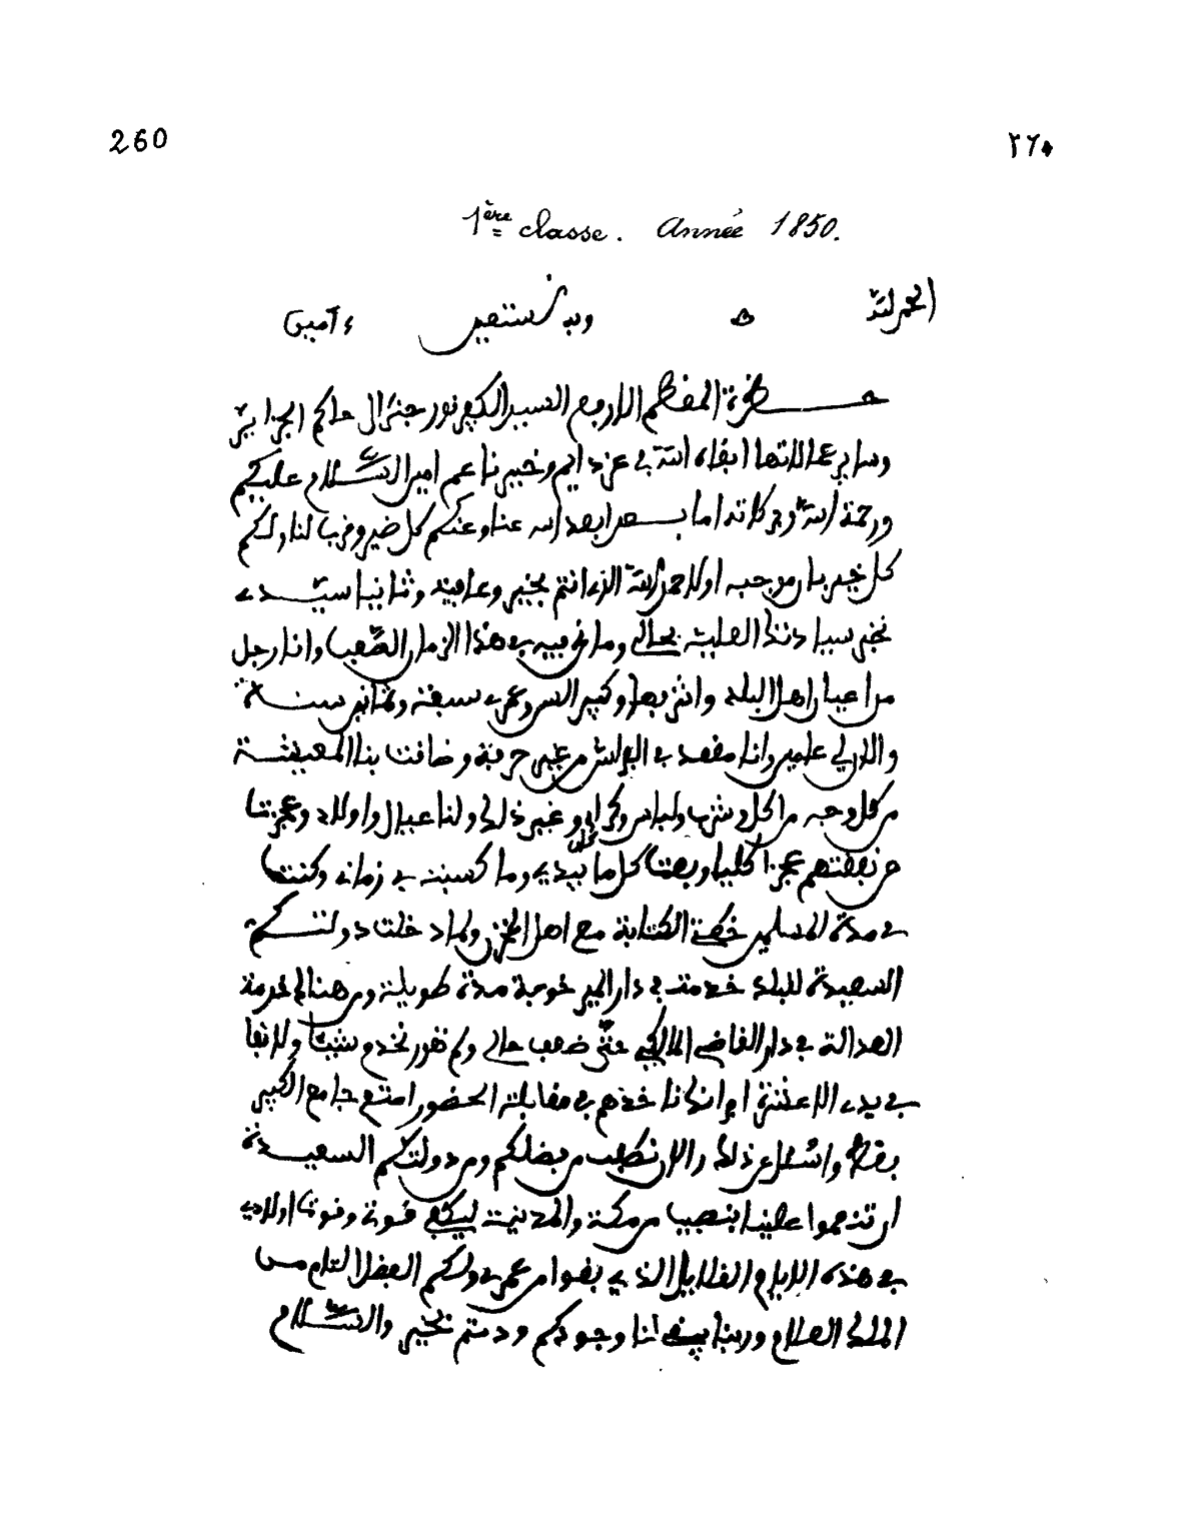 260 ٢٦٠
1ère classe. Année 1850.
الحمد لله ه وبه نستعين ءامين
حضرة المعظم الارفع السيد الكبرنور جنرال حاكم الجزاير
وساير عمالاتها ابقاه الله في عز دايم وخير ناعم امين السلام عليكم
ورحمة الله وبركاته اما بعد ابعد الله عنا وعنكم كل ضير وقرب لنا ولكم
كل خير بان موجبه اولا حمد لله الذي انتم بخير وعافية وثانيا سيدي
نخبر سيادتك العلية بحالي وما انا فيه في هذا الزمان الصعب وانا رجل
من اعيان اهل البلد وكبير السن وعمري سبعة وثمانين سنة
والان لي عامين وانا مقعد في الفراش من غير حرفة وضاقت بنا المعيشة
من كل وجه من اكل وشرب ولباس وكراء وغير ذلك ولنا عيال واولاد وعجزت
من نفقتهم عجزا كليا وبعت كل ما كان بيدي وما كسبت في زماني وكنت
في مدة المسلمين خطة الكتابة مع اهل المخزن ولما دخلت دولتكم
السعيدة للبلد خدمت في دار المير خوجة مدة طويلة ومن هناك لخدمة
العدالة في دار القاضي المالكي حتى ضعف حالي ولم نقدر نخدم شيئا ولا بقا
في يدي الا عشرة افرانك انا خذهم في مقابلة الحضور متع جامع الكبير
فقط واسئل عن ذلك والان نطلب من فضلكم ومن دولتكم السعيدة
ان تنعموا علينا بنصيب من مكة والمدينة ليكفي قوتي وقوت اولادي
في هذه الايام القلايل الذي بقوا من عمري ولكم الفضل التام من
الملك العلام وربنا يبقي لنا وجودكم ودمتم بخير والسلام